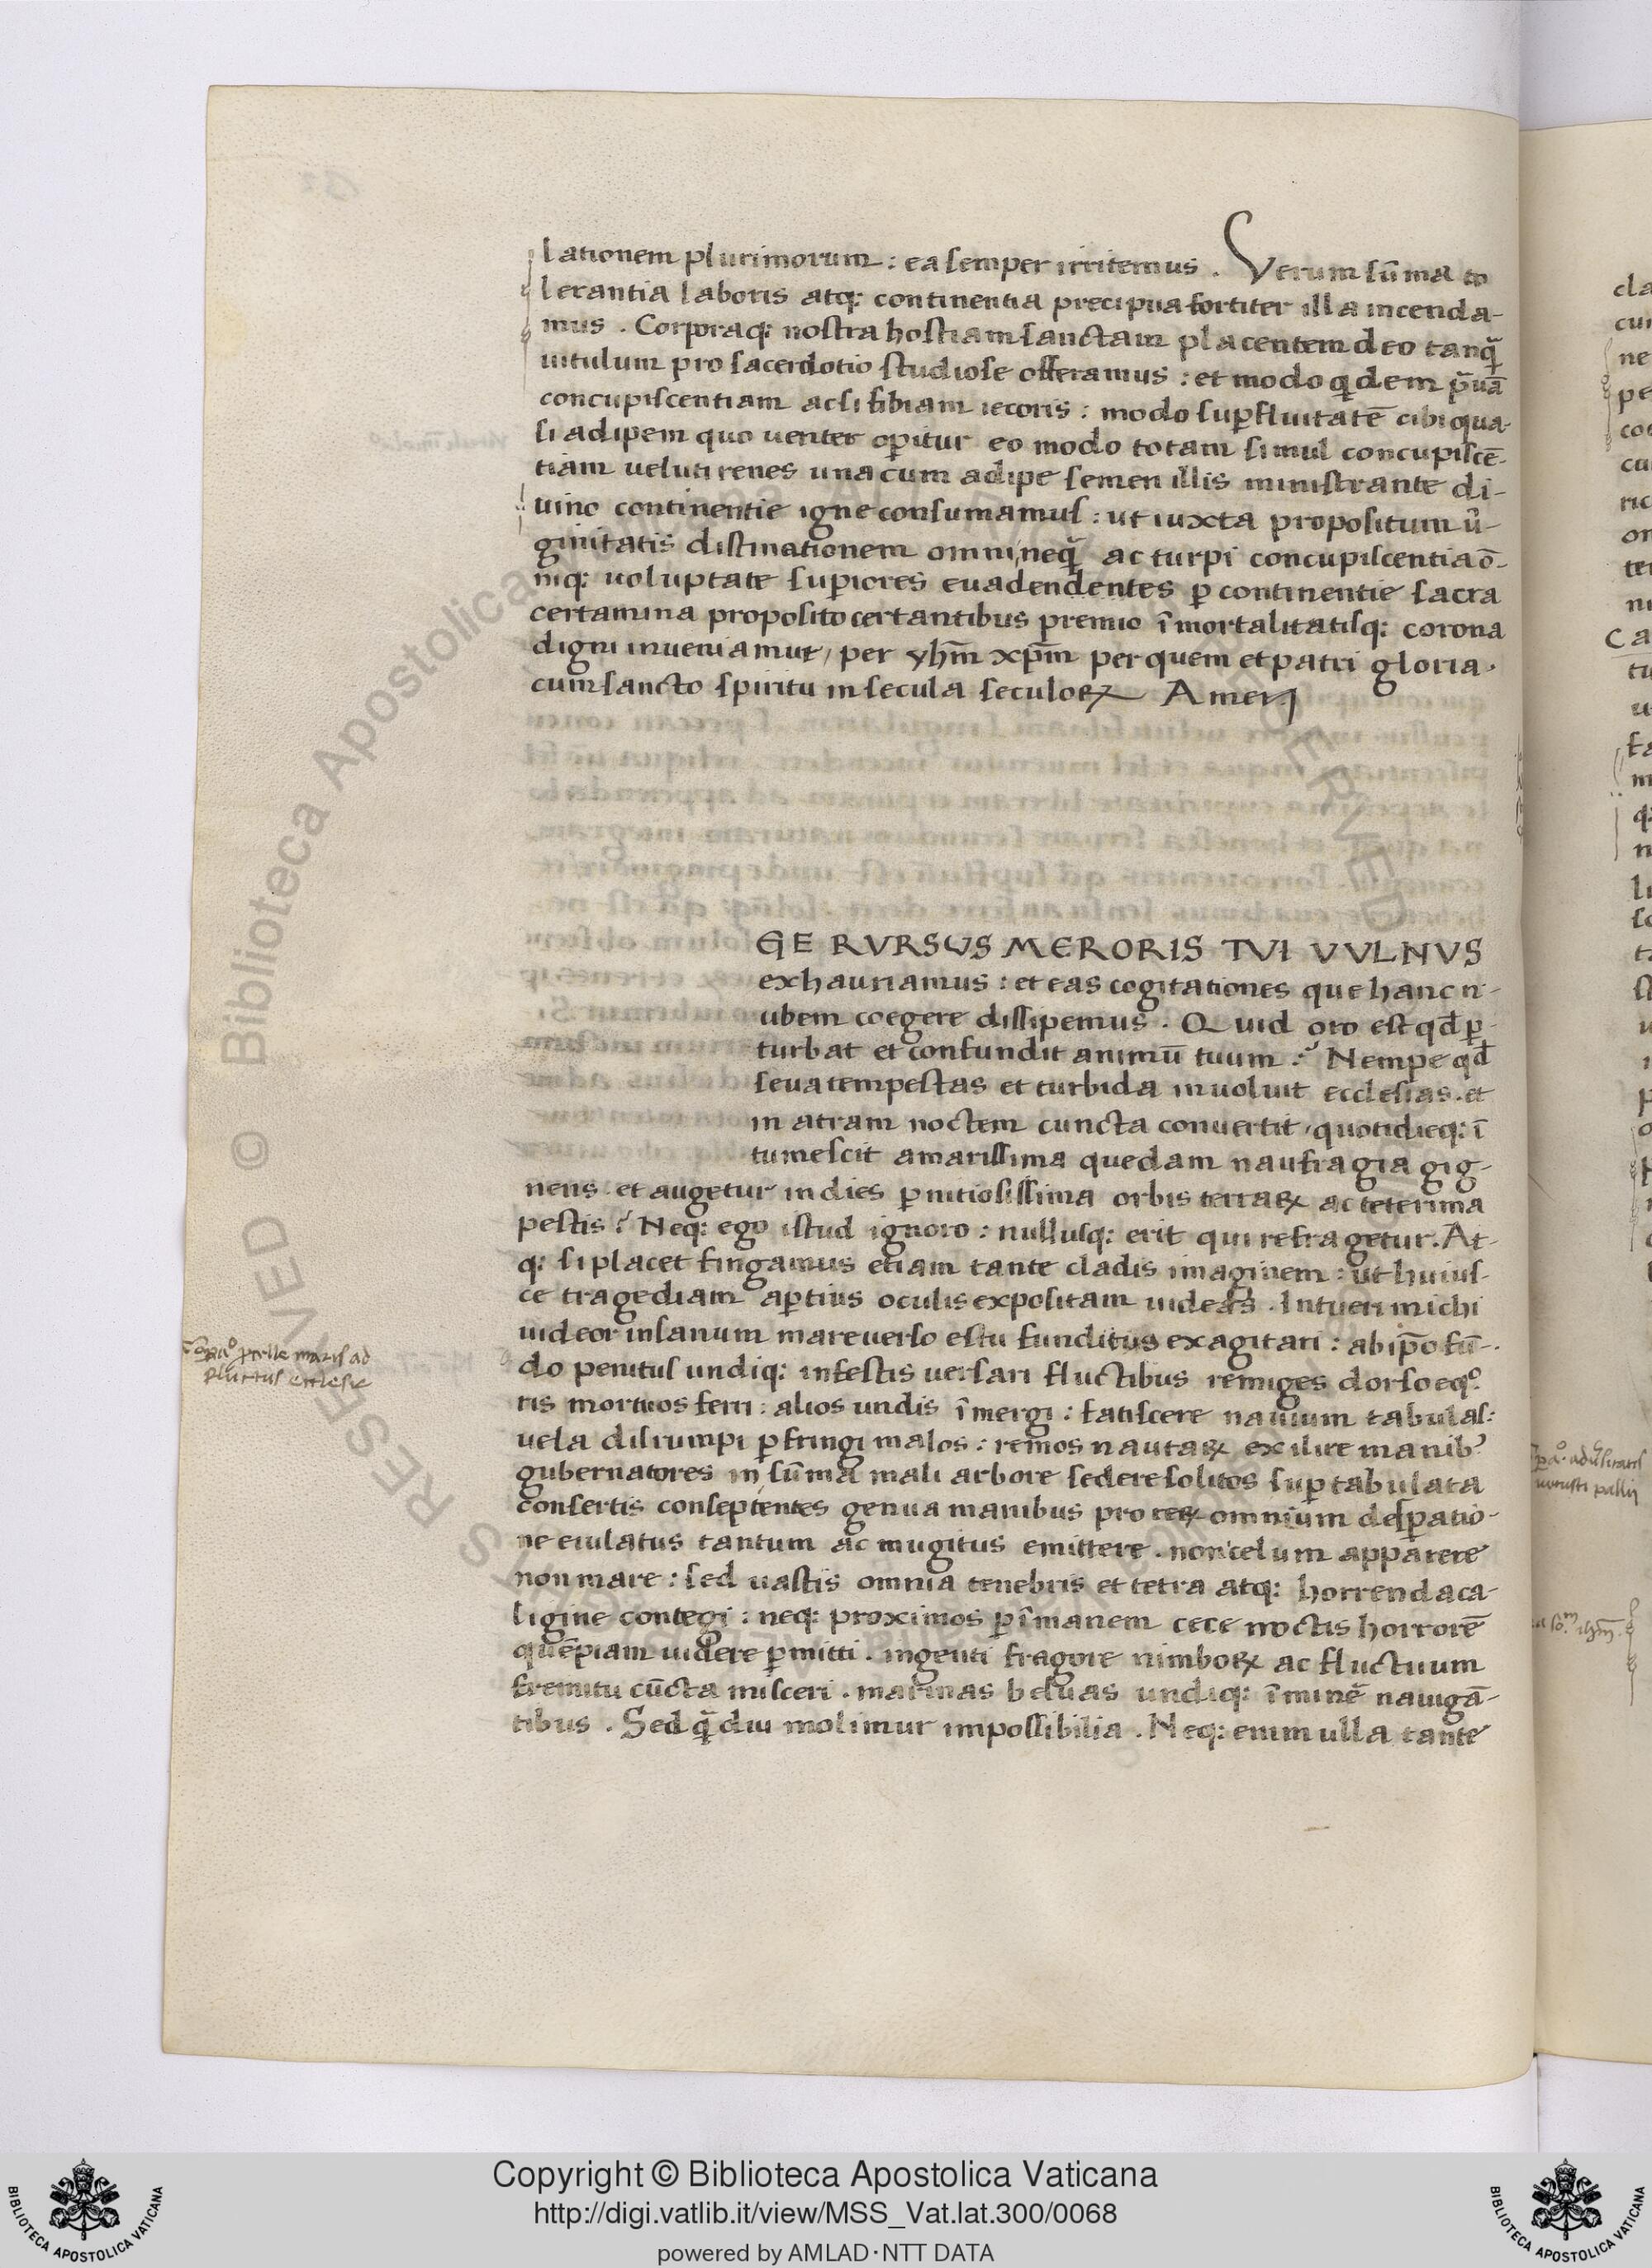 lationem plurimorum : ea semper irritemus . Verum sūma to
lerantia laboris atq: continentia precipua fortiter illa incenda-
mus . Corporaq: nostra hostiam sanctam placentem deo tanq̄
uitulum pro sacerdotio studiose offeramus : et modo qdem p̄uā
concupiscentiam acsi fibiam iecoris : modo sup̱fluitatē cibi qua-
si adipem quo uenter op̱itur eo modo totam simul concupiscē-
tiam ueluti renes una cum adipe semen illis ministrante di-
uino continentie igne consumamus : ut iuxta propositum ū-
ginitatis distinationem omni neq̄ ac turpi concupiscentia ō-
niq: uoluptate sup̱iores euadendentes p̱ continentie sacra
certamina proposito certantibus premio īmortalitatisq: corona
digni inueniamur, per yhm̄ xp̄m per quem et patri gloria .
cum sancto spiritu in secula seculoꝝ Amen
GE RVRSUS MERORIS TVI VVLNVS
exhauriamus : et eas cogitationes que hanc n-
ubem coegere dissipemus . Quid oro est qd̄ p̱-
turbat et confundit animū tuum ? Nempe qd̄
seua tempestas et turbida inuoluit ecclesias . et
in atram noctem cuncta conuertit, quotidieq: ī
tumescit amarissima quedam naufragia gig-
nens . et augetur in dies p̱nitiosissima orbis terraꝝ ac teterima
pestis ? Neq: ego istud ignoro : nullusq: erit qui refragetur . At-
q: si placet fingamus etiam tante cladis imaginem : ut huius-
ce tragediam ap̱tius oculis expositam uideas . Intueri michi
uideor insanum mare uerso estu funditus exagitari : ab ip̄o fū-
do penitus undiq: infestis uersari fluctibus remiges dorso eqͦ
ris mortuos ferri : alios undis īmergi : fatiscere nauium tabulas :
uela disrumpi p̱fringi malos : remos nautaꝝ exilire manib'
gubernatores in sūma mali arbore sedere solitos sup̱ tabulata
consertis conseptentes genua manibus pro reꝝ omnium desp̱atio-
ne eiulatus tantum ac mugitus emittere . non celum apparere
non mare : sed uastis omnia tenebris et tetra atq: horrenda ca-
ligine contegi : neq: proximos p̱ īmanem cece noctis horrorē
quēpiam uidere p̱mitti . ingenti fragore nimboꝝ ac fluctuum
fremitu cūcta misceri . marinas beluas undiq: īminē nauigā-
tibus . Sed q̄ diu molimur impossibilia . Neq: enim ulla tante
maris ad
fluctus ecclesie
Copyright © Biblioteca Apostolica Vaticana
http://digi.vatlib.it/view/MSS_Vat.lat.300/0068
powered by AMLAD·NTT DATA
BIBLIOTECA APOSTOLICA VATICANA
BIBLIOTECA APOSTOLICA VATICANA